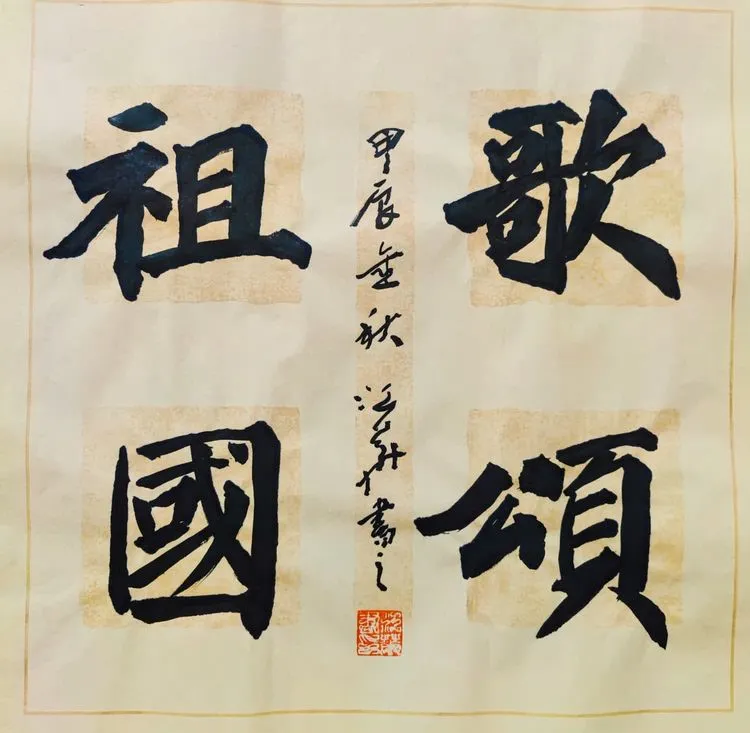 歌頌
祖國
甲辰金秋 汪 書之